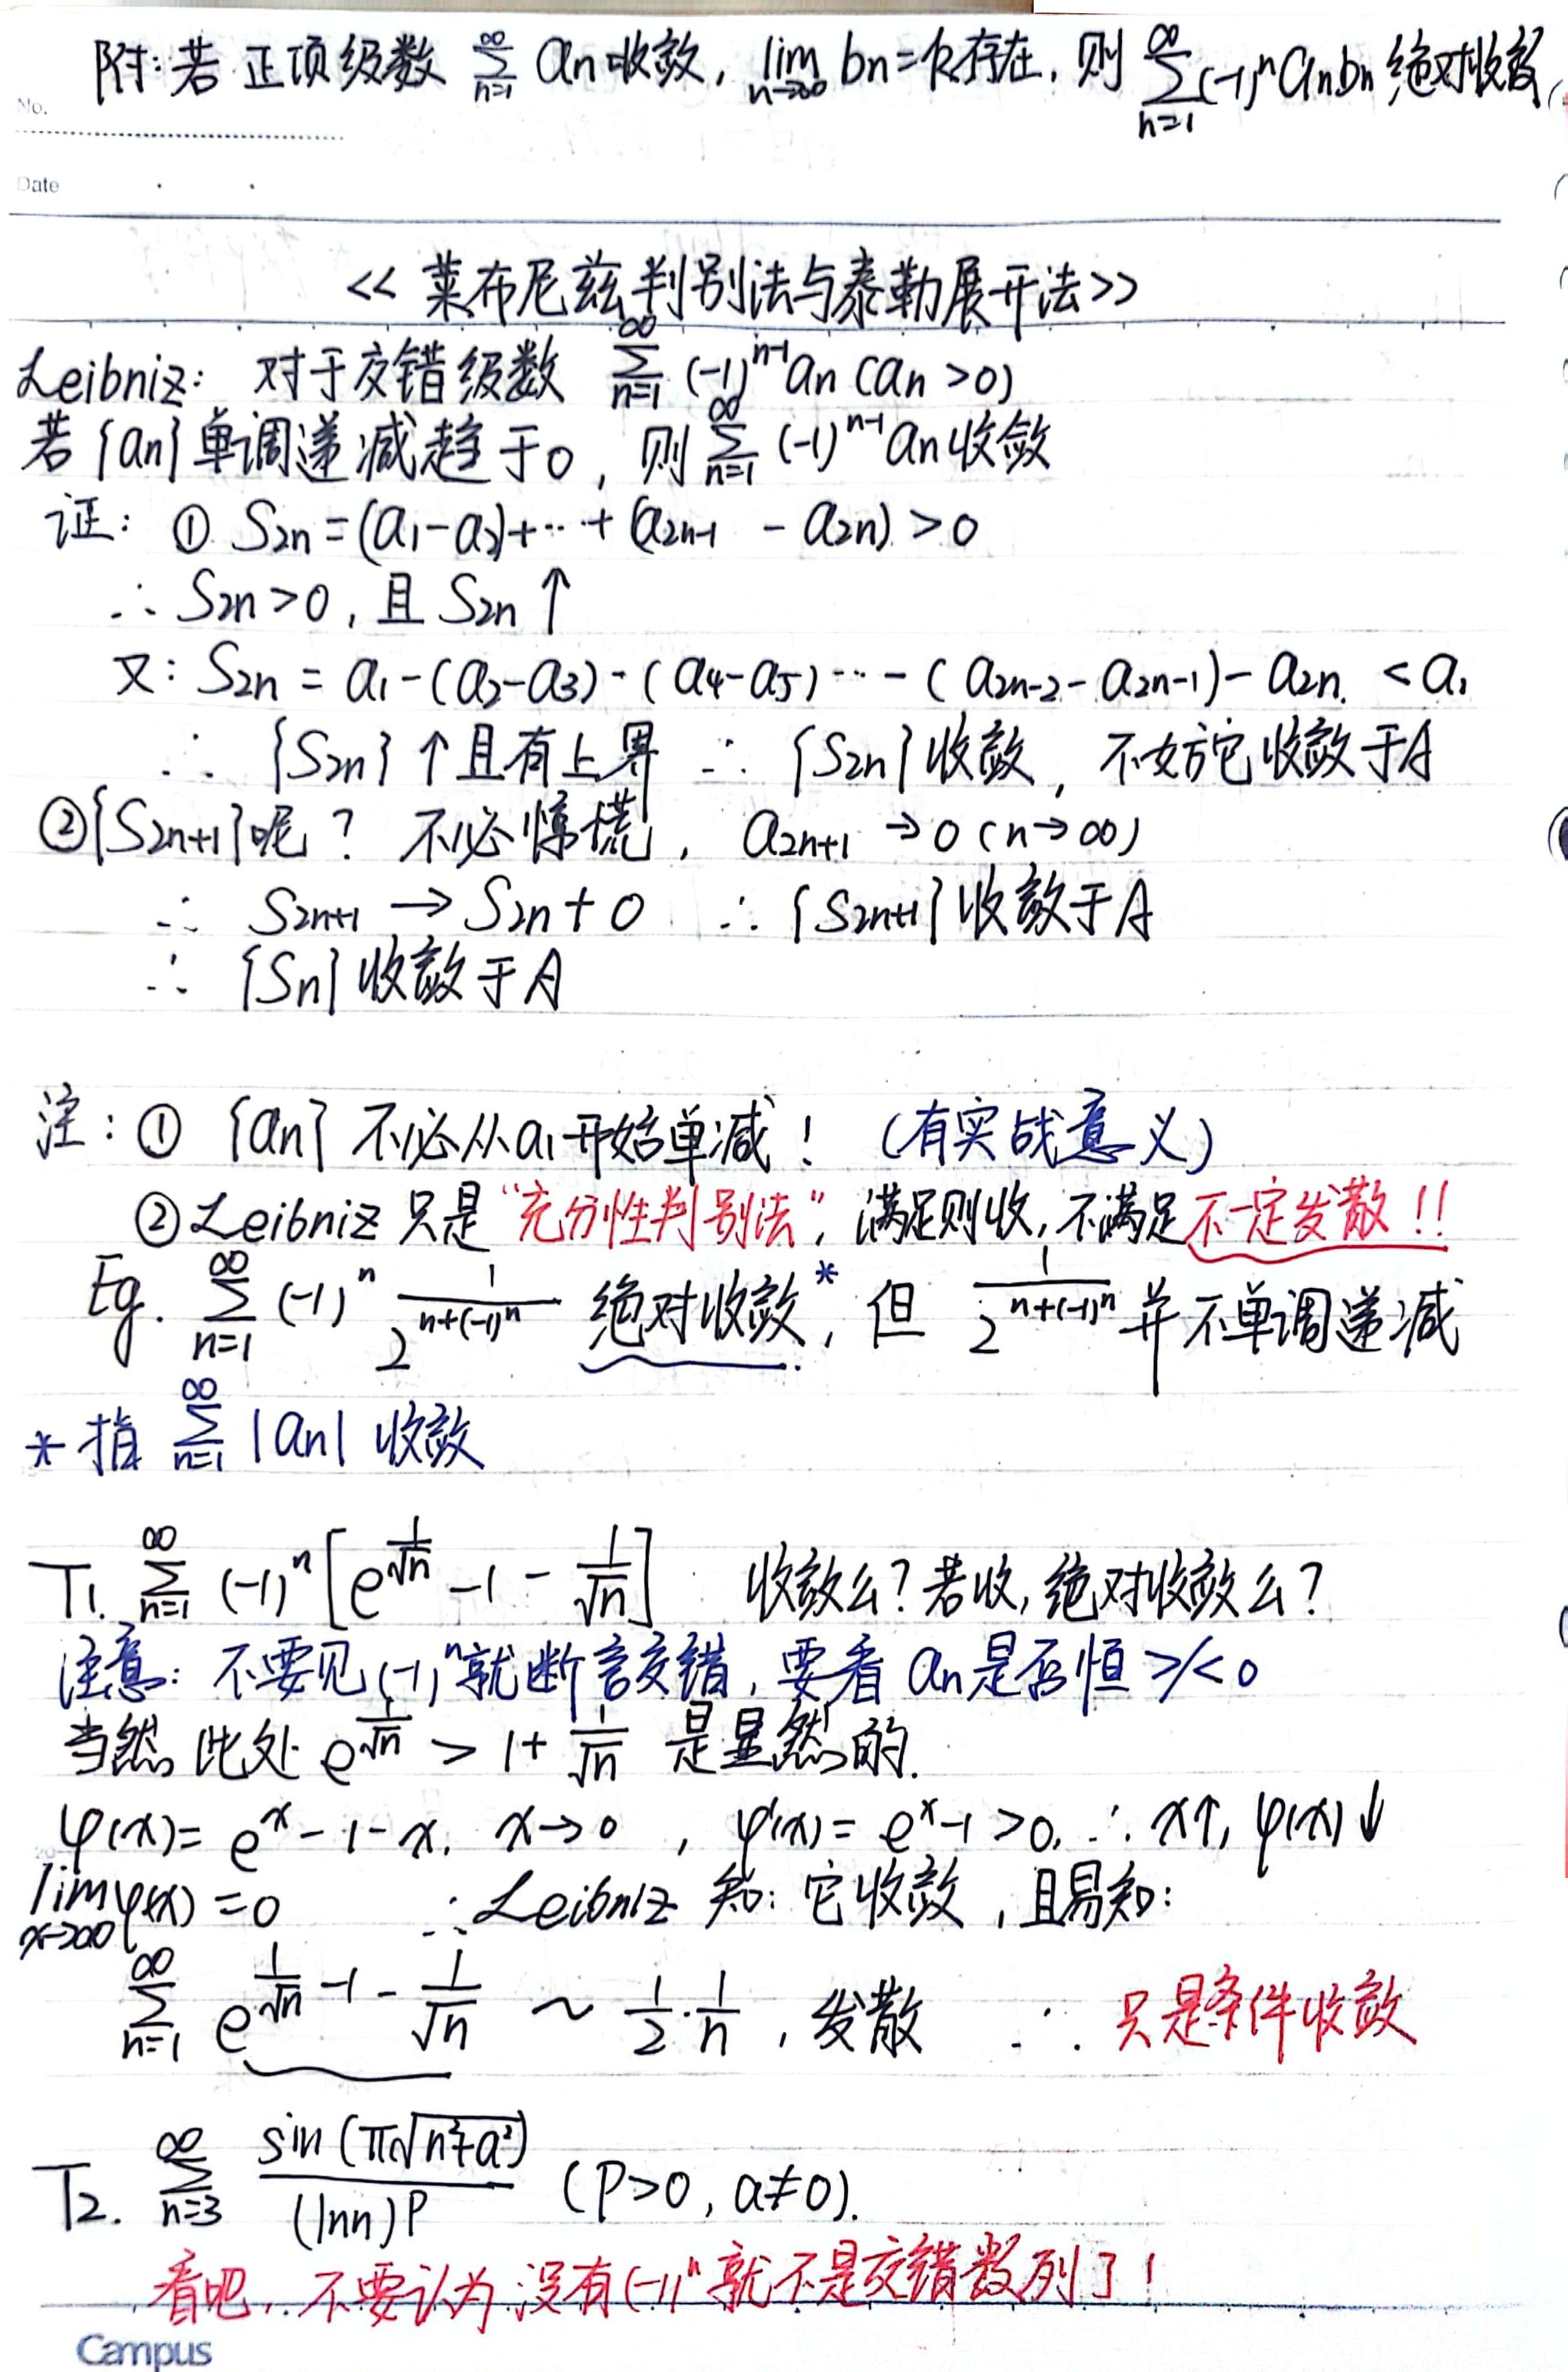 附:若正项级数 ∑_{n=1}^{∞} an收敛, lim_{n→∞} bn=k存在, 则 ∑_{n=1}^{∞} (-1)^n an bn 绝对收敛
No.
Date
<< 莱布尼兹判别法与泰勒展开法>>
Leibniz: 对于交错级数 ∑_{n=1}^{∞} (-1)^{n-1} an (an>0)
若{an}单调递减趋于0, 则 ∑_{n=1}^{∞} (-1)^{n-1} an收敛
证: ① S2n=(a1-a2)+…+(a2n-1 - a2n) >0
∴ S2n>0, 且 S2n ↑
又: S2n = a1-(a2-a3)-(a4-a5)…-(a2n-2-a2n-1)-a2n <a1
∴ {S2n}↑且有上界 ∴ {S2n}收敛, 不妨它收敛于A
②{S2n+1}呢? 不必惊慌, a2n+1 →0 (n→∞)
∴ S2n+1 → S2n+0 ∴ {S2n+1}收敛于A
∴ {Sn}收敛于A
注: ① {an} 不必从a1开始单减! (有实战意义)
② Leibniz 只是“充分性判别法”, 满足则收, 不满足不一定发散!!
Eg. ∑_{n=1}^{∞} (-1)^n 1/2^{n+(-1)^n} 绝对收敛*, 但 1/2^{n+(-1)^n} 并不单调递减
* 指 ∑_{n=1}^{∞} |an| 收敛
T1. ∑_{n=1}^{∞} (-1)^n [e^{1/√n} -1 - 1/√n] 收敛么? 若收, 绝对收敛么?
注意: 不要见(-1)^n就断言交错, 要看 an是否恒 >/< 0
当然 此处 e^{1/√n} > 1+ 1/√n 是显然的.
φ(x)= e^x-1-x, x→0 , φ'(x)= e^x-1 >0, ∴ x↑, φ(x)↓
lim_{x→∞} φ(x) =0 ∴ Leibniz 知: 它收敛, 且易知:
∑_{n=1}^{∞} e^{1/√n} -1 - 1/√n ~ 1/2·1/n , 发散 ∴ 只是条件收敛
T2. ∑_{n=3}^{∞} sin(π√(n²+a²))/(lnn)^p (P>0, a≠0).
看吧, 不要认为没有(-1)^n就不是交错数列了!
Campus